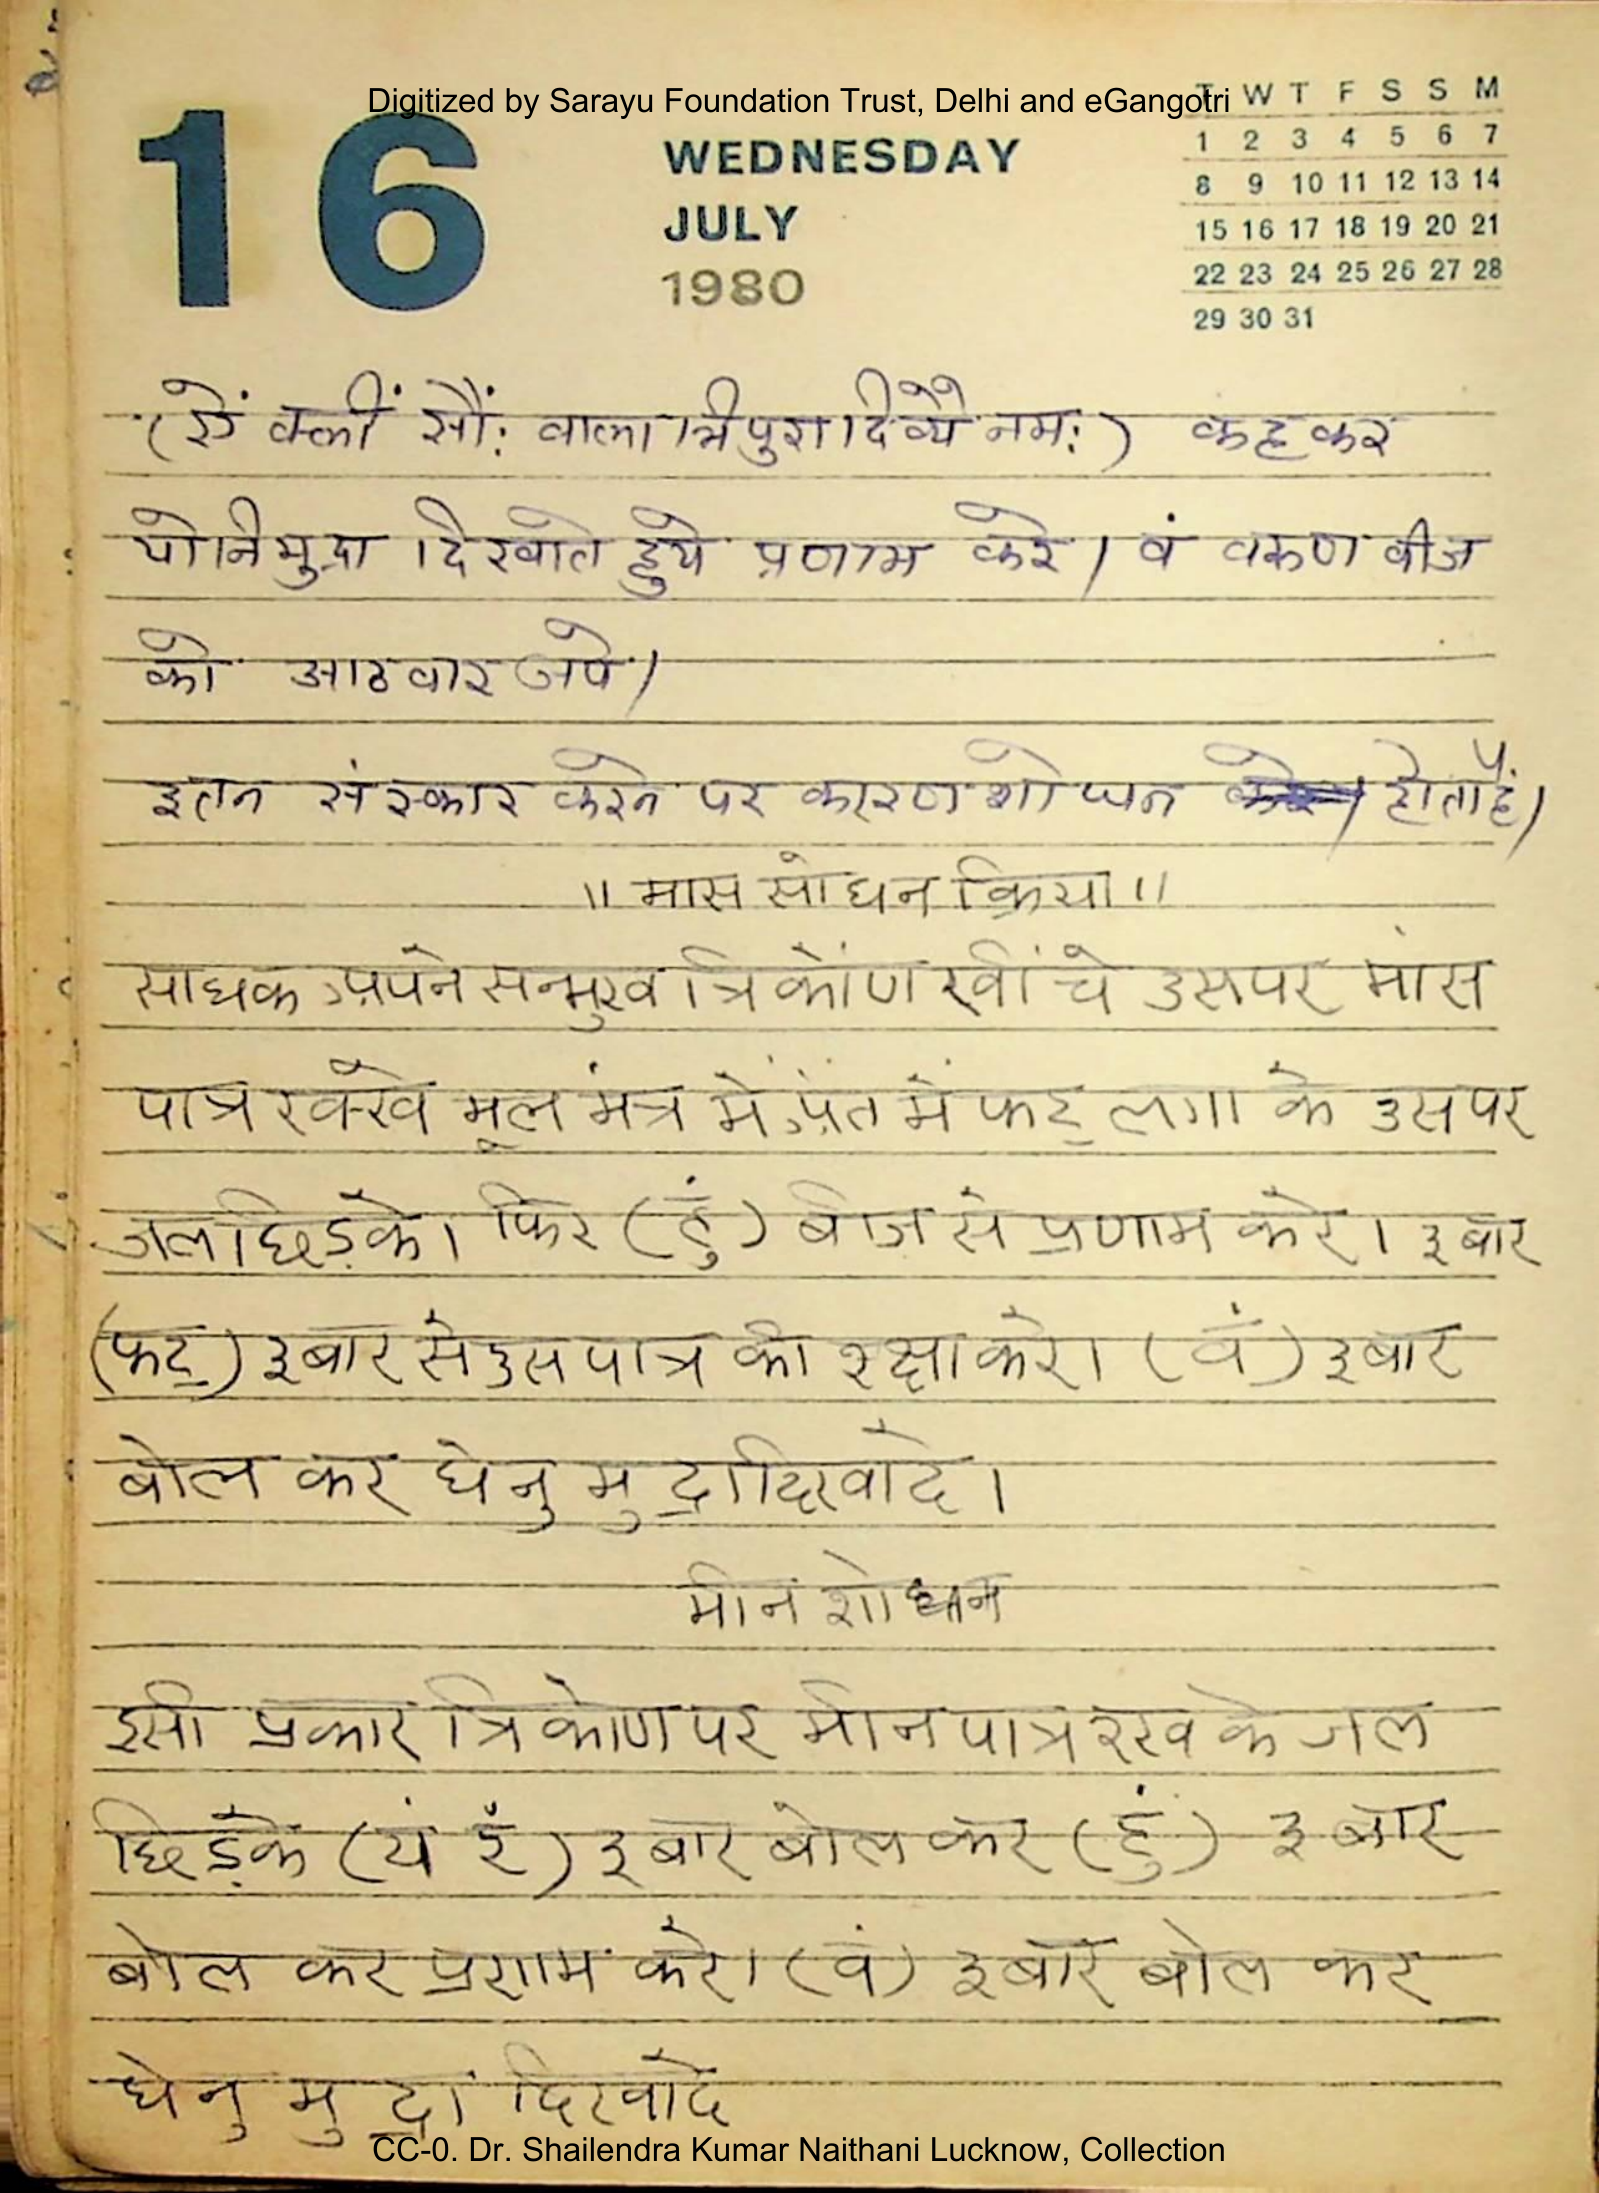 Digitized by Sarayu Foundation Trust, Delhi and eGangotri
16
WEDNESDAY
JULY
1980
T W T F S S M
1 2 3 4 5 6 7
8 9 10 11 12 13 14
15 16 17 18 19 20 21
22 23 24 25 26 27 28
29 30 31
(ऐं क्लीं सौं: वाला त्रिपुरा दिव्यै नम:) कह कर
योनि मुद्रा दिखाते हुये प्रणाम करे। वं वरुण वीज
को आठ वार जपे।
इतने संस्कार करने पर कारण शोधन होता है।
॥ मास सोधन क्रिया ॥
साधक अपने सन्मुख त्रिकोंण खींचे उसपर मांस
पात्र रक्खे मूल मंत्र में अंत में फट् लगा के उस पर
जल छिड़के। फिर (हुं) बीज से प्रणाम करे। ३ बार
(फट्) ३ बार से उस पात्र की रक्षा करे। (वं) ३ बार
बोल कर धेनु मुद्रा दिखादे।
मीन शोधन
इसी प्रकार त्रिकोण पर मीन पात्र रख के जल
छिड़के (यं रं) ३ बार बोल कर (हुं) ३ बार
बोल कर प्रणाम करे। (वं) ३ बार बोल कर
धेनु मुद्रा दिखादे
CC-0. Dr. Shailendra Kumar Naithani Lucknow, Collection